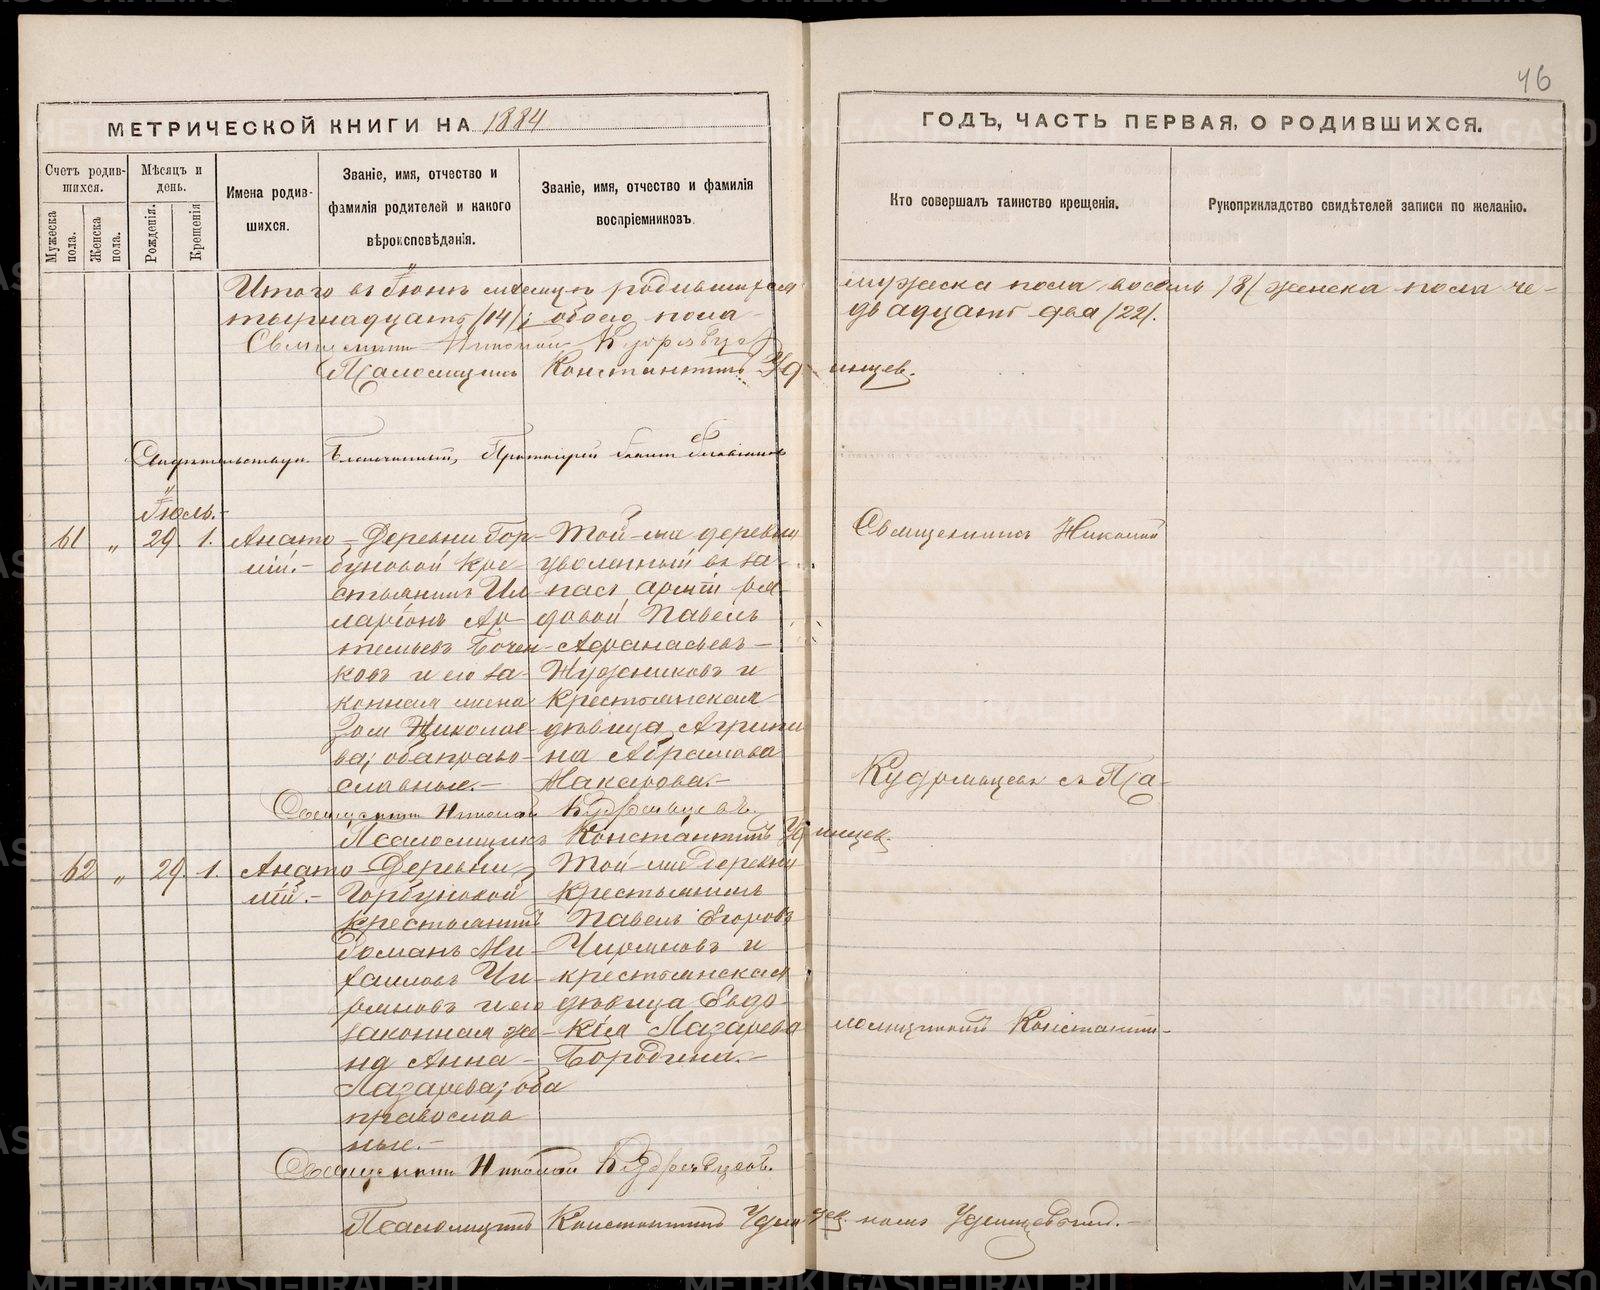 46
МЕТРИЧЕСКОЙ КНИГИ НА 1884
ГОДЪ, ЧАСТЬ ПЕРВАЯ, О РОДИВШИХСЯ.
Счетъ родив-
шихся.
Мужеска пола.
Женска пола.
Мѣсяцъ и
день.
Рожденія.
Крещенія
Имена родив-
шихся.
Званіе, имя, отчество и
фамилія родителей и какого
вѣроисповѣданія.
Званіе, имя, отчество и фамилія
воспріемниковъ.
Кто совершалъ таинство крещенія.
Рукоприкладство свидѣтелей записи по желанію.
Итого въ Іюнѣ мѣсяцѣ родившихся мужеска пола восемь /8/ женска пола че-
тырнадцать /14/; обоего пола двадцать два /22/.
Священникъ Николай
Псаломщикъ Константинъ Удинцев.
Благочинный, Протоіерей
Іюль.
61 " 29. 1. Анато-
лій.-
Деревни Гор-
буновой кре-
стьянинъ Ил-
ларіонъ Ар-
темьевъ Бочен-
ковъ и его за-
конная жена
Николае-
ва; оба право-
славные.-
Той-же деревни
уволенный въ за-
пасъ арміи ря-
довой Павелъ
Афанасьевъ
и
крестьянская
дѣвица Агрипи-
на Абрамова
Макарова.-
Священникъ Николай
Кудрявцевъ съ Пса-
Священникъ Николай Кудрявцевъ.
Псаломщикъ Константинъ Удинцев.
62 " 29. 1. Анато-
лій.-
Деревни
Горбуновой
крестьянинъ
Романъ Ми-
хаиловъ Чи-
рьяновъ и его
законная же-
на Анна
Лазарева; оба
православ-
ные.-
Той-же деревни
крестьянинъ
Павелъ Егоровъ
Чирьяновъ и
крестьянская
дѣвица Евдо-
кія Лазарева
Бородина.-
ломщикомъ Константи-
Священникъ Николай Кудрявцевъ.
Псаломщикъ Константинъ Удинцев.
номъ Удинцевымъ.-
METRIKI.GASO-URAL.RU